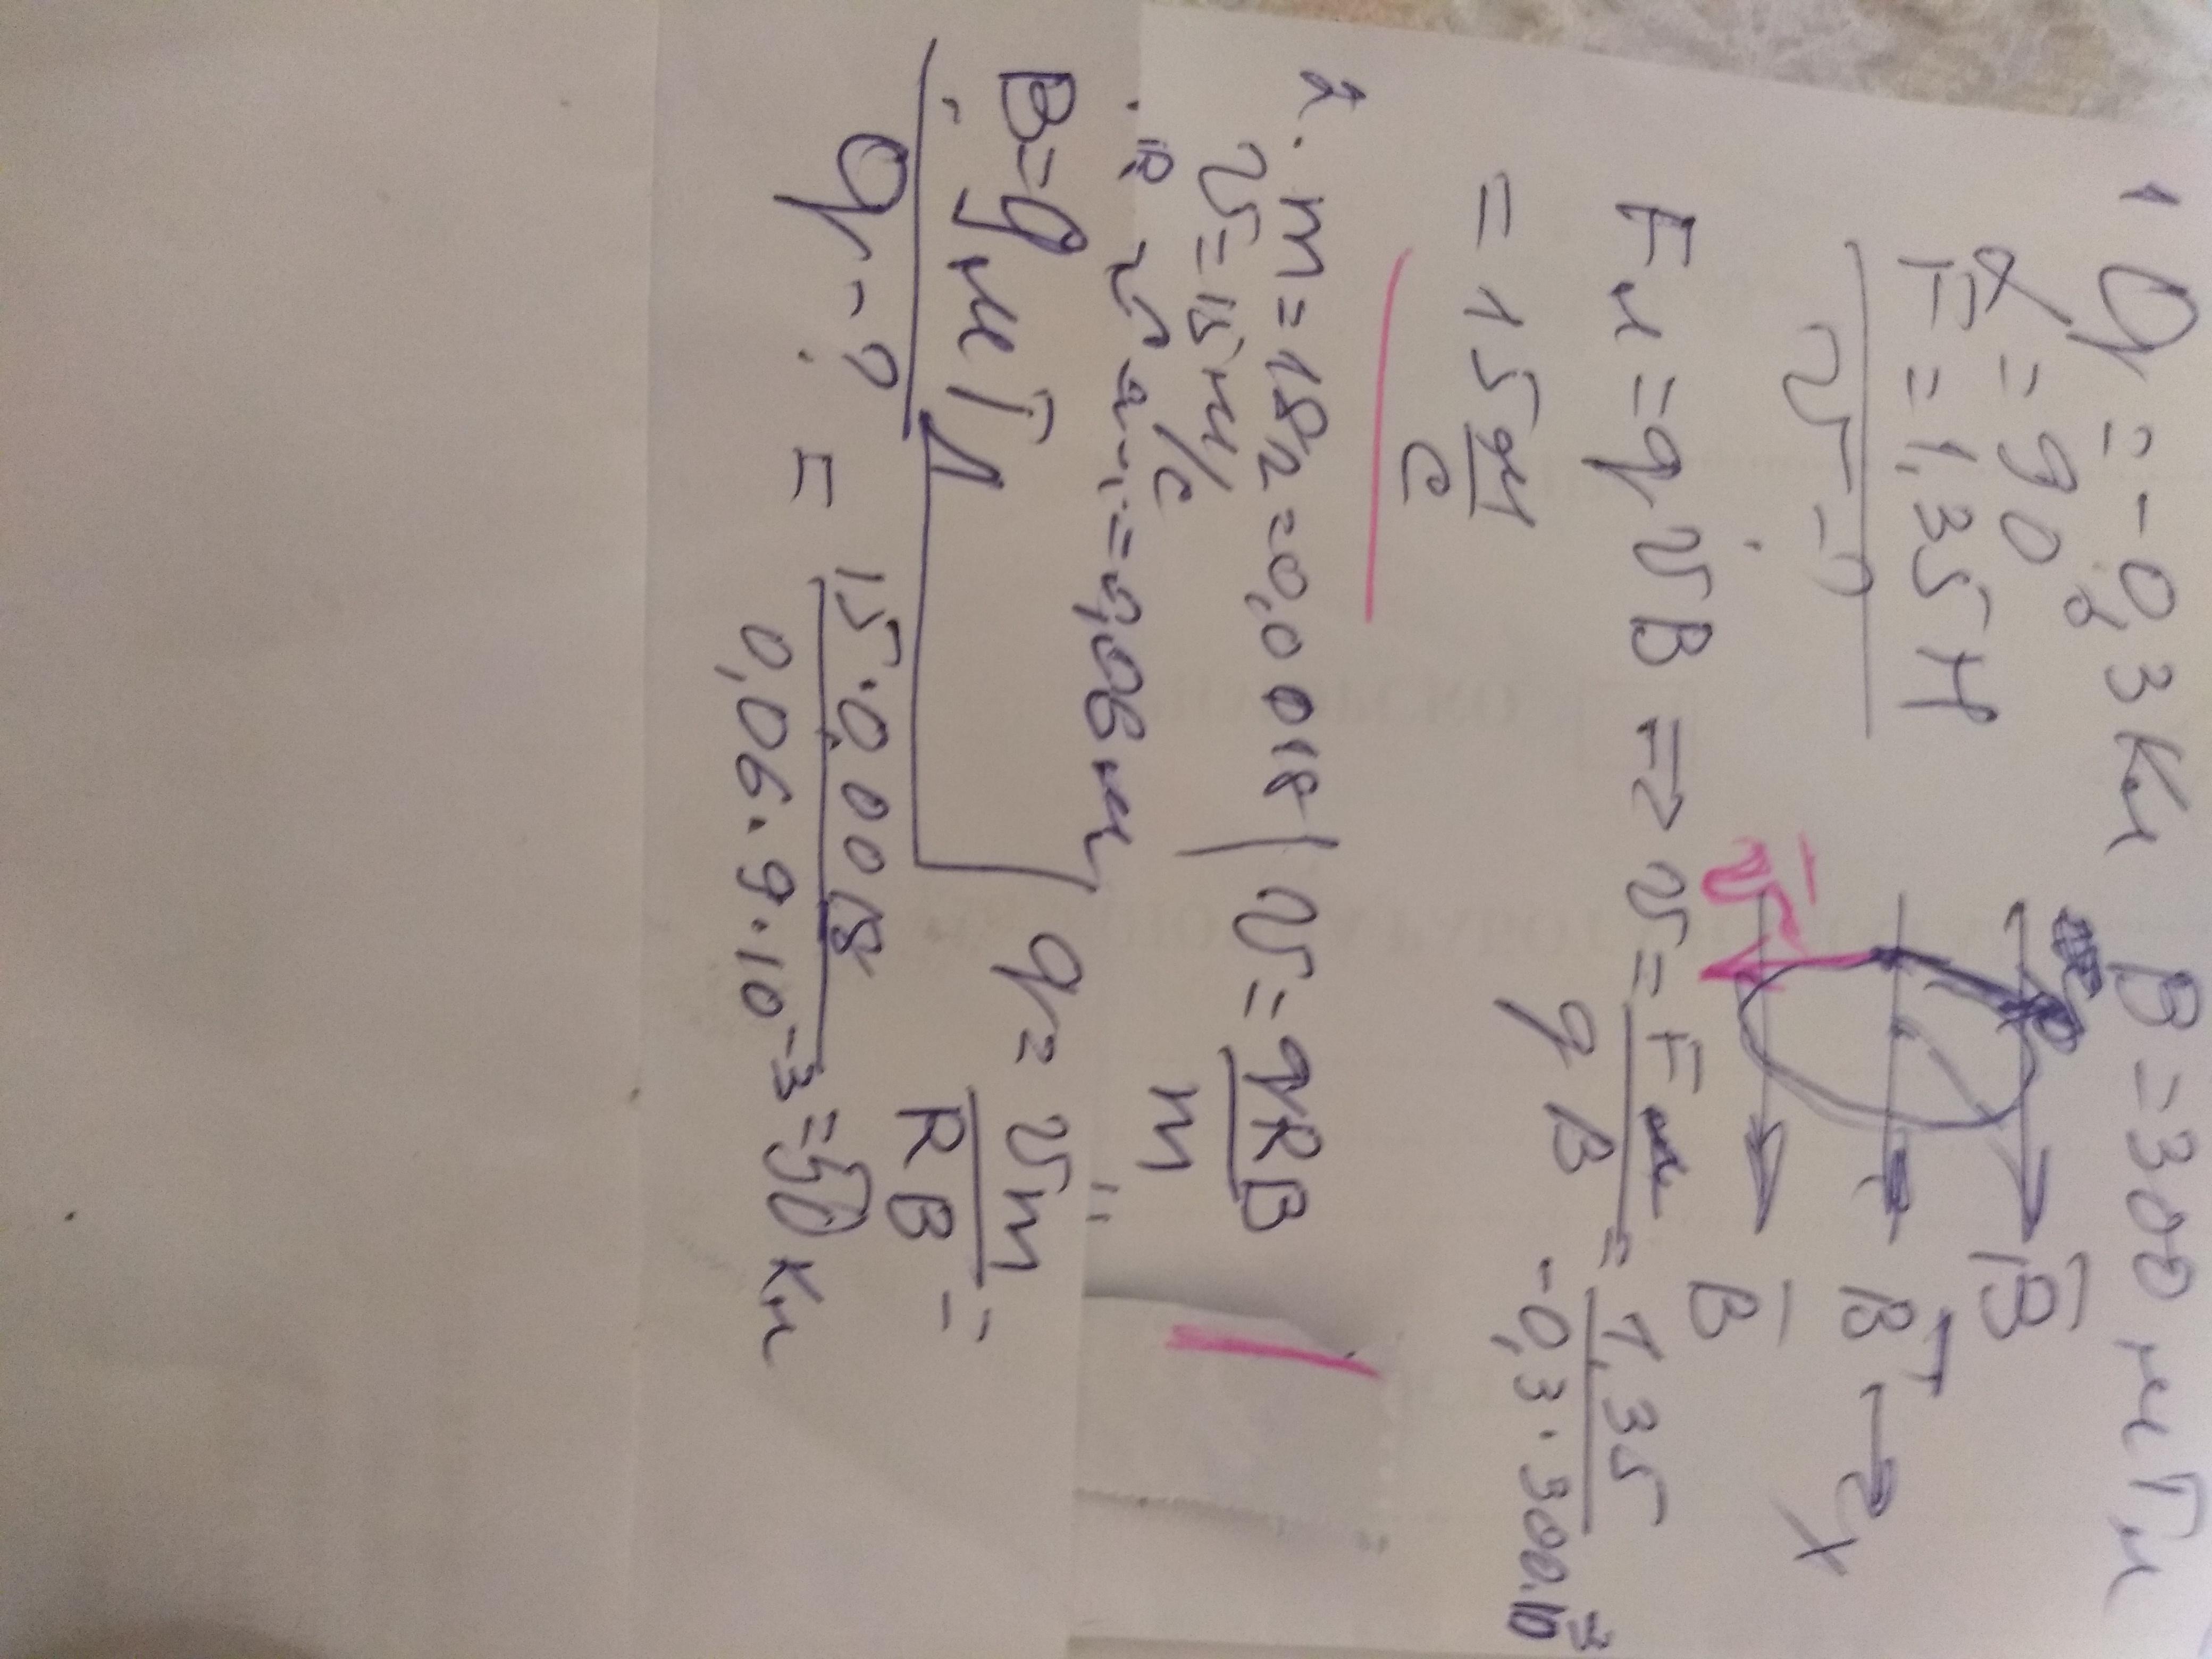 1 q = -0,3 Кл B = 300 мТл
α = 90
F = 1,35 Н
v - ?
B
B
B
v
Fл = q v B => v = F / q B = 1,35 / -0,3 · 300 · 10⁻³
= 15 м/с
2. m = 18 г = 0,0018
v = 15 м/с
= 0,06 м
B = 9 мТл
q - ?
v = qRB / m
q = vm / RB =
= 15 · 0,0018 / 0,06 · 9 · 10⁻³ = 50 Кл